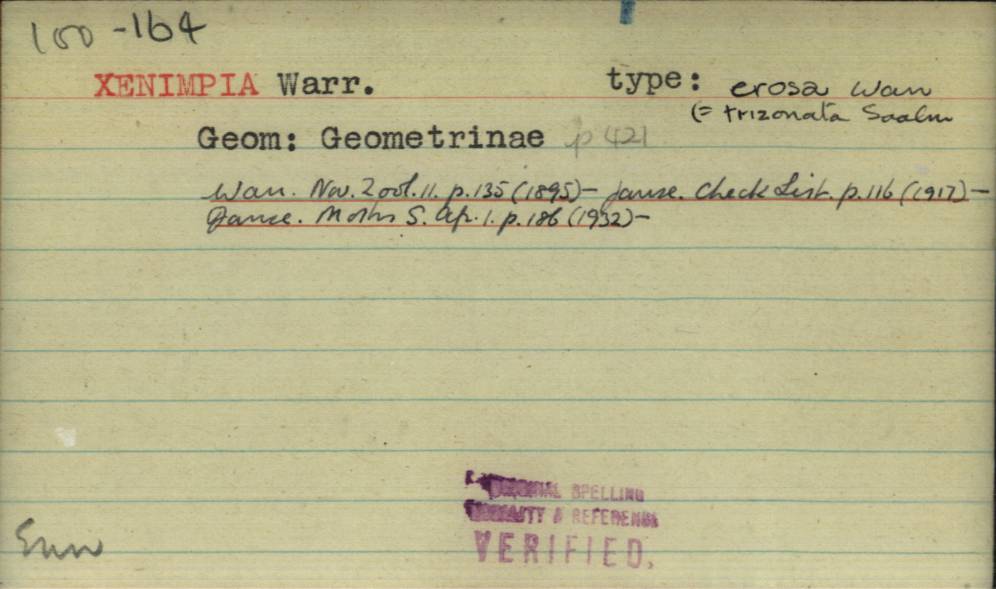 100-164
XENIMPIA Warr. type: erosa Warr
(= trizonata Saalm
Geom: Geometrinae p 421
Warr. Nov. Zool. 11. p. 135 (1895)- Janse. Check List. p. 116 (1917)-
Janse. Moths S. Af. 1. p. 186 (1932)-
ORIGINAL SPELLING
PRIORITY & REFERENCE
VERIFIED.
Enn